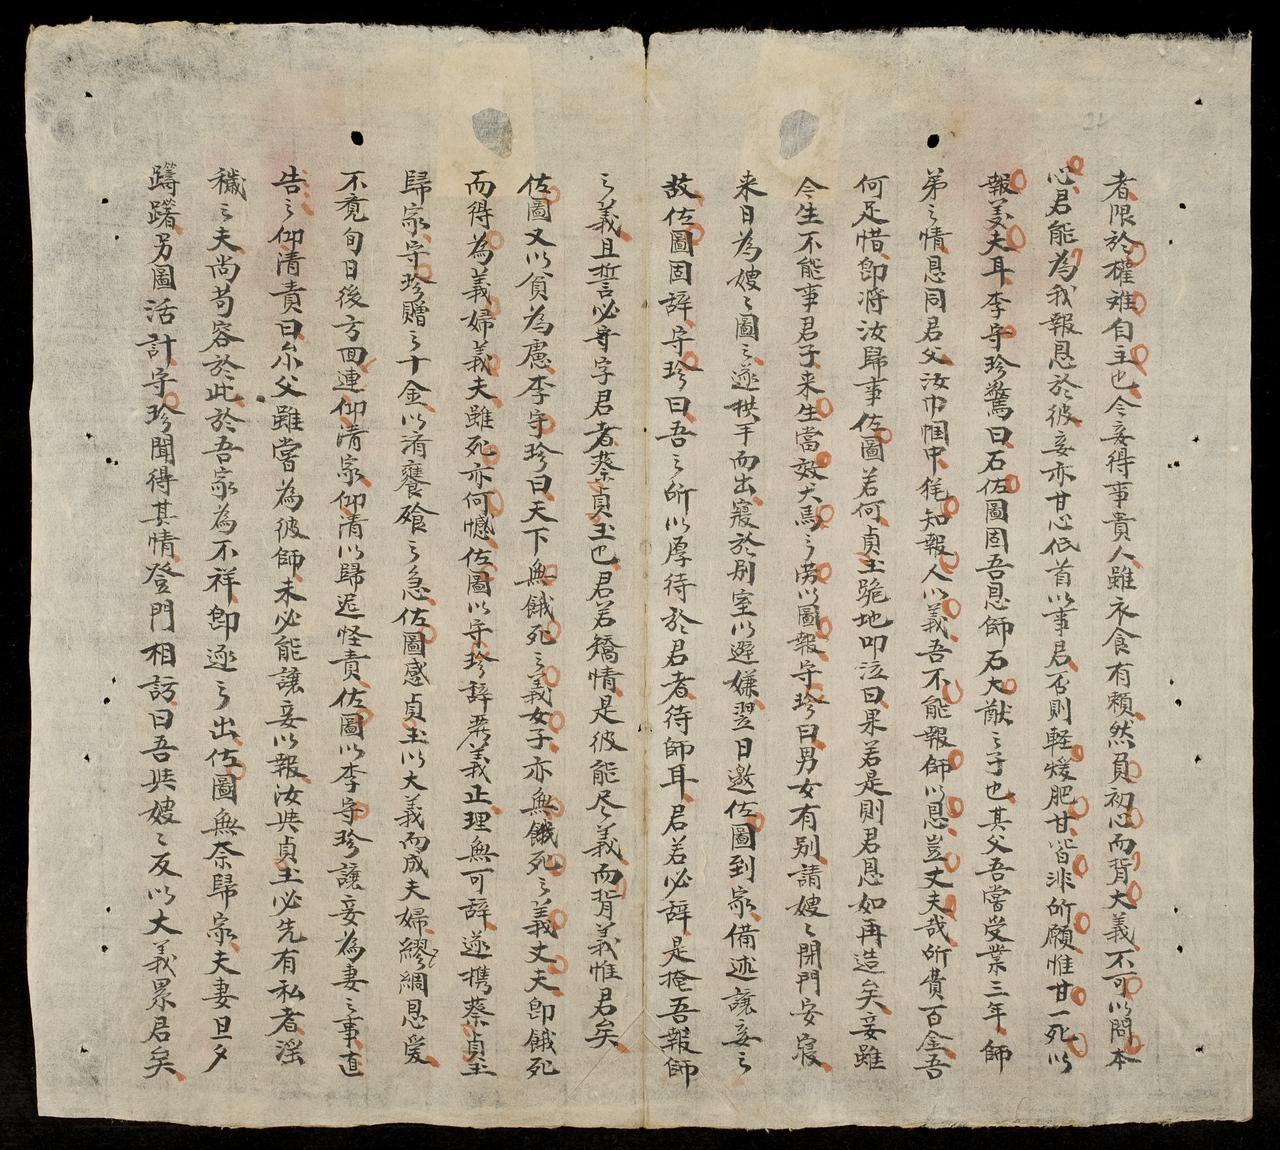 者限於權難自主也今妾得事貴人雖衣食有賴然負初心而背大義不可以問本
心君能為我報恩於彼妾亦甘心低首以事君否則軽煖肥甘皆非所願惟甘一死以
報姜夫耳李守珍驚曰石佐圖固吾恩師石大猷之子也其父吾嘗受業三年師
弟之情恩同君父汝巾幗中猶知報人以義吾不能報師以恩豈丈夫哉所費百金吾
何足惜即将汝歸事佐圖若何貞玉跪地叩泣曰果若是則君恩如再造矣妾雖
今生不能事君子来生當效犬馬之劳以圖報守珍曰男女有别請嫂々閉門安寢
来日為嫂々圖之遂拱手而出寢於别室以避嫌翌日邀佐圖到家備述讓妾之
故佐圖固辞守珍曰吾之所以厚待於君者待師耳君若必辞是掩吾報師
之義且誓必守字君者蔡貞玉也君若矯情是彼能尽義而背義惟君矣
佐圖又以貧為慮李守珍曰天下無餓死之義女子亦無餓死之義丈夫即餓死
而得為義婦義夫雖死亦何憾佐圖以守珍辞嚴義正理無可辞遂携蔡貞玉
歸家守珍贈之十金以濟饔飧之急佐圖感貞玉以大義而成夫婦綢繆恩愛
不竟旬日後方回連仰清家仰清以歸迟怪責佐圖以李守珍讓妾為妻之事直
告之仰清責曰尔父雖嘗為彼師未必能讓妾以報汝与貞玉必先有私者滛
穢之夫尚苟容於此於吾家為不祥即逐之出佐圖無奈歸家夫妻旦夕
躊躇另圖活計守珍聞得其情登門相訪曰吾与嫂々反以大義累君矣